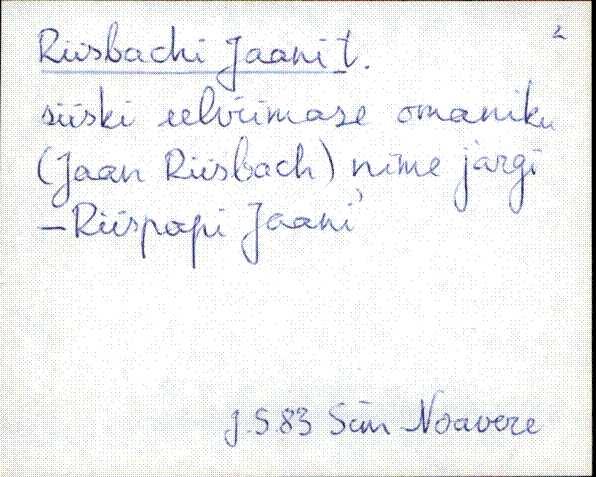 2
Riisbachi Jaani t.
siiski eelviimase omaniku
(Jaan Riisbach) nime järgi
– Riispapi Jaani'
J.S.83 Sim Noavere